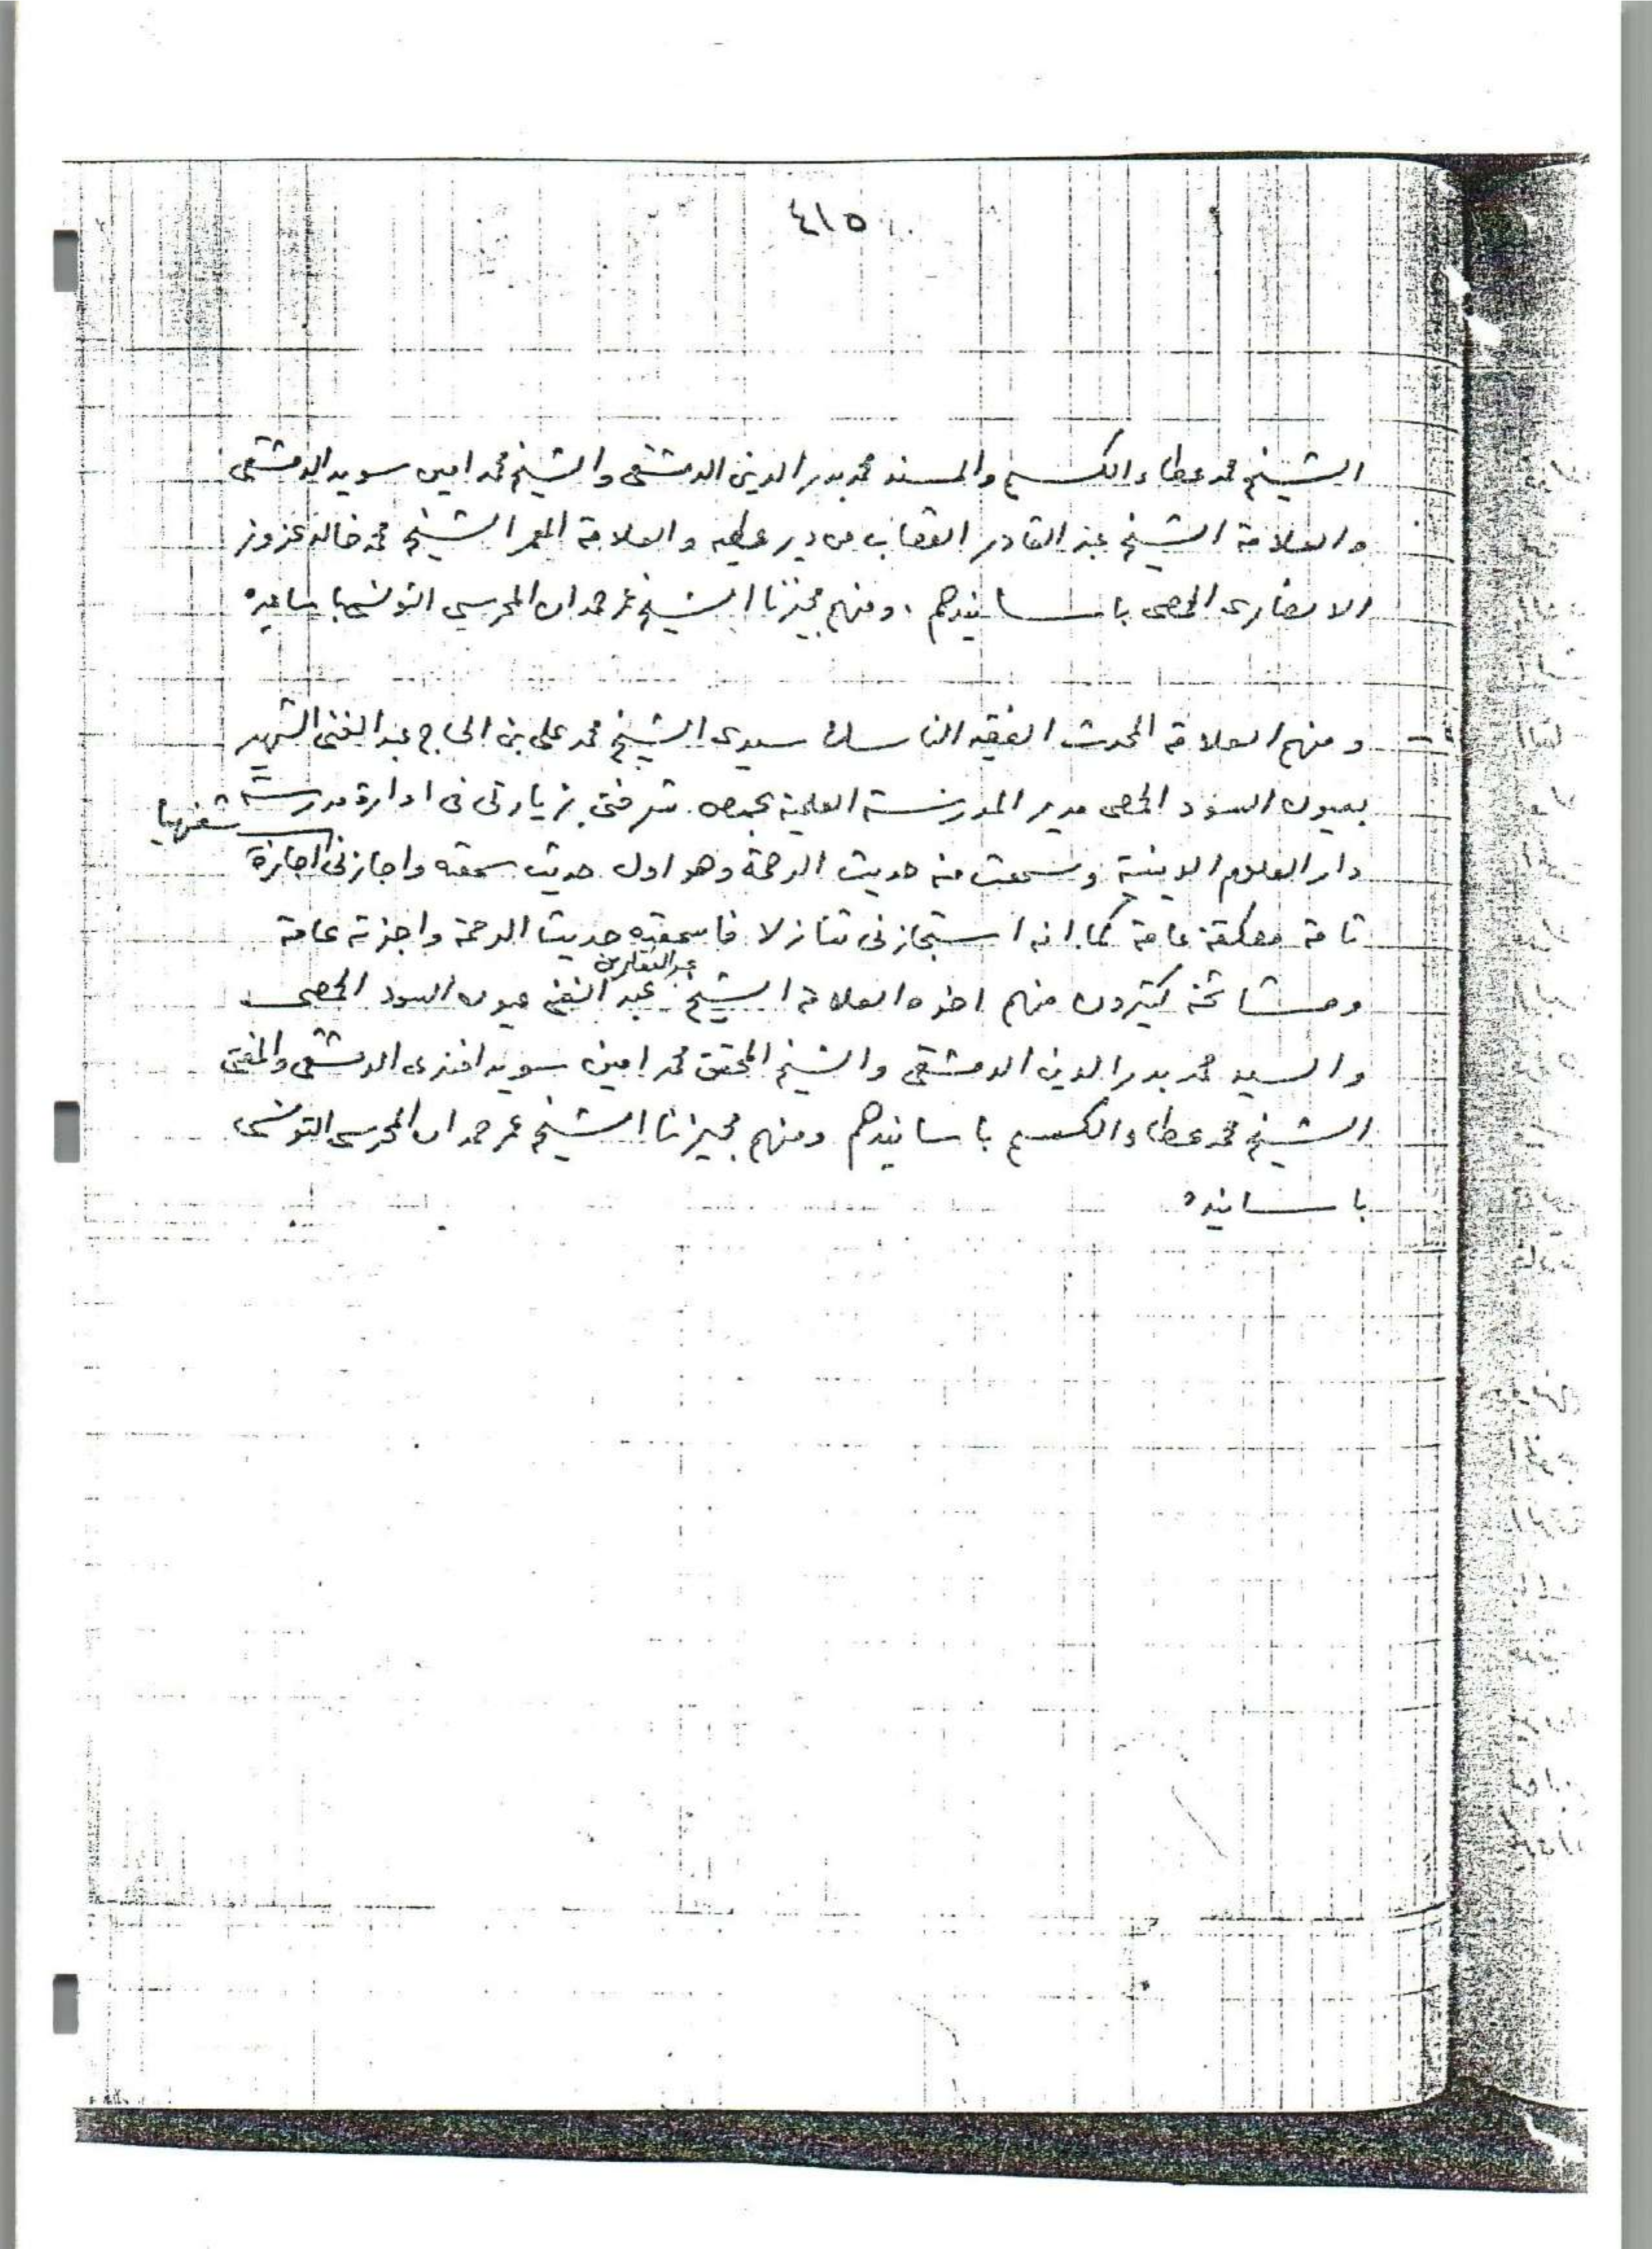 ٤١٥
الشيخ محمد عطاء الكسم والمسند محمد بدر الدين الدمشقى والشيخ محمد امين سويد الدمشقى
والعلامة الشيخ عبد القادر القصاب من دير عطيه والعلامة المعمر الشيخ محمد خالد
الانصارى الحمصى باسانيدهم . ومنهم مجيزنا الشيخ عمر حمدان المحرسي التونسي باسانيده
ومنهم العلامة المحدث الفقيه الناسك سيدى الشيخ محمد على بن الحاج عبد الغنى الشهير
بعيون السود الحمصى مدير المدرسة العلمية بحمص شرفنى بزيارتى فى ادارة مدرسة
دار العلوم الدينية وسمعت منه حديث الرحمة وهو اول حديث سمعته واجازنى اجازة شفهيا
تامة مطلقة عامة كما انه استجازنى تنازلا فاسمعته حديث الرحمة واجزته عامة
ومشائخه كثيرون منهم اخوه العلامة الشيخ عبد الغفار بن عبد الغنى عيون السود الحمصى
والسيد محمد بدر الدين الدمشقى والشيخ المحقق محمد امين سويد افندى الدمشقى والمفتى
الشيخ محمد عطاء الكسم باسانيدهم ومنهم مجيزنا الشيخ عمر حمدان المحرسى التونسى
باسانيده